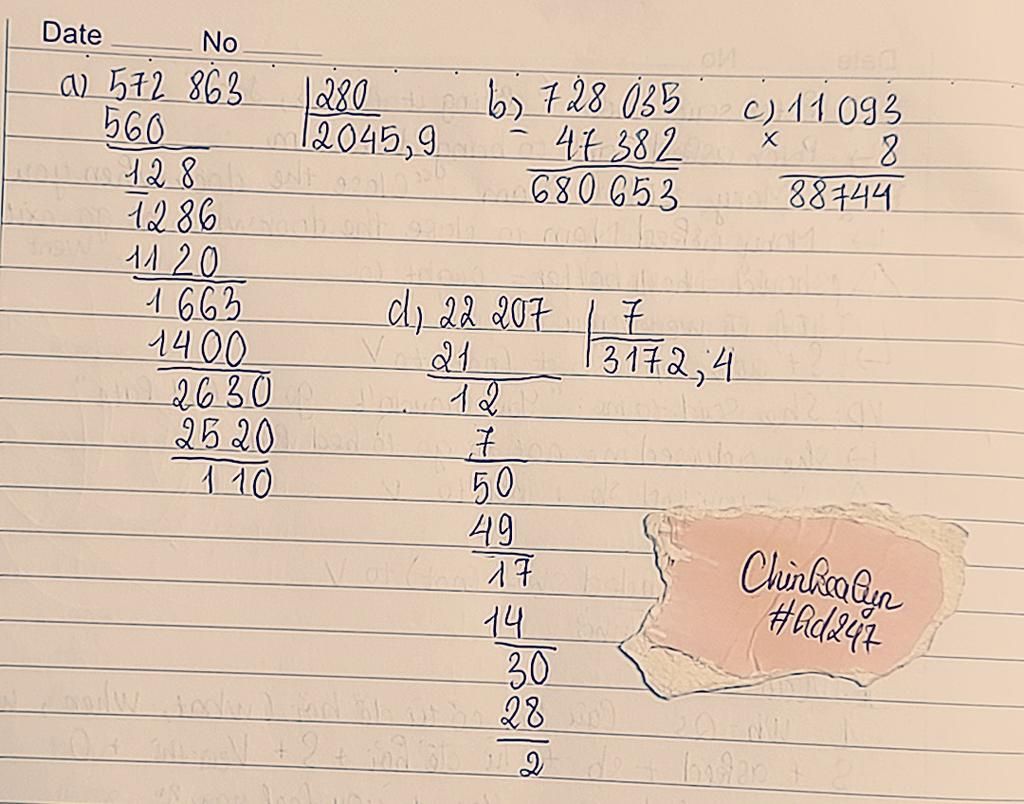 Date No
a) 572 863 280
560 2045,9
128
1286
1120
1663
1400
2630
2520
110
b) 728 035
- 47 382
680 653
c) 11 093
x 8
88744
d) 22 207 7
21 3172,4
12
7
50
49
17
14
30
28
2
#Ad247